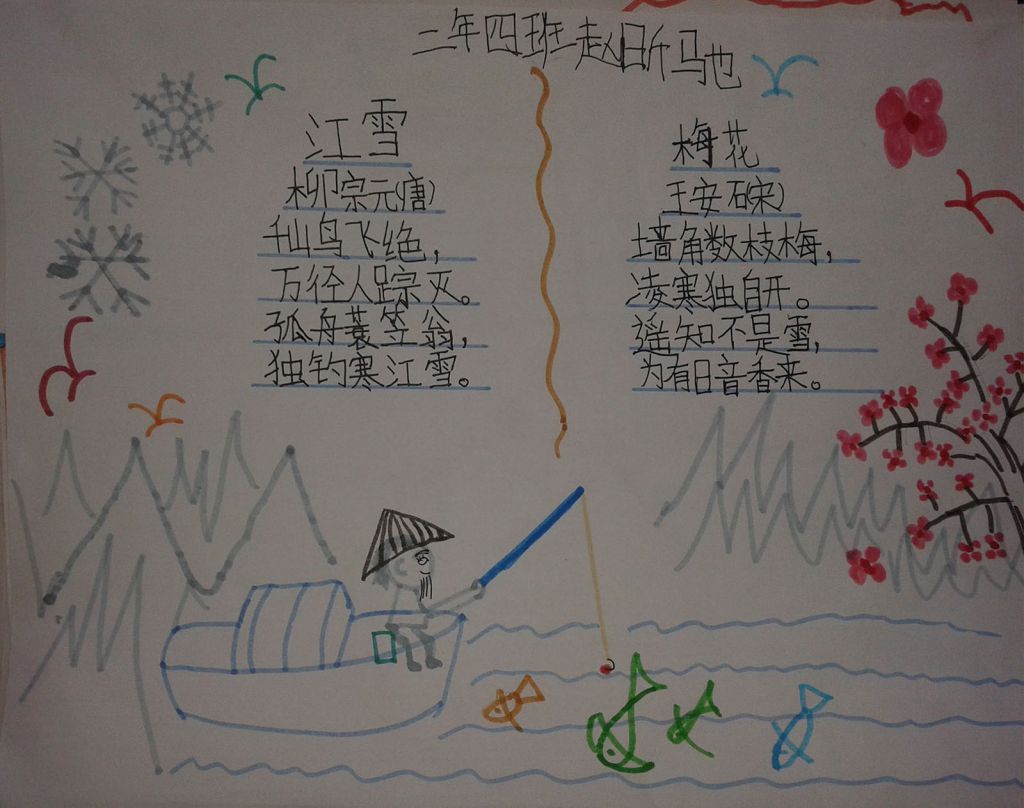 二年四班赵昕驰
江雪
柳宗元(唐)
千山鸟飞绝，
万径人踪灭。
孤舟蓑笠翁，
独钓寒江雪。
梅花
王安石(宋)
墙角数枝梅，
凌寒独自开。
遥知不是雪，
为有日音香来。